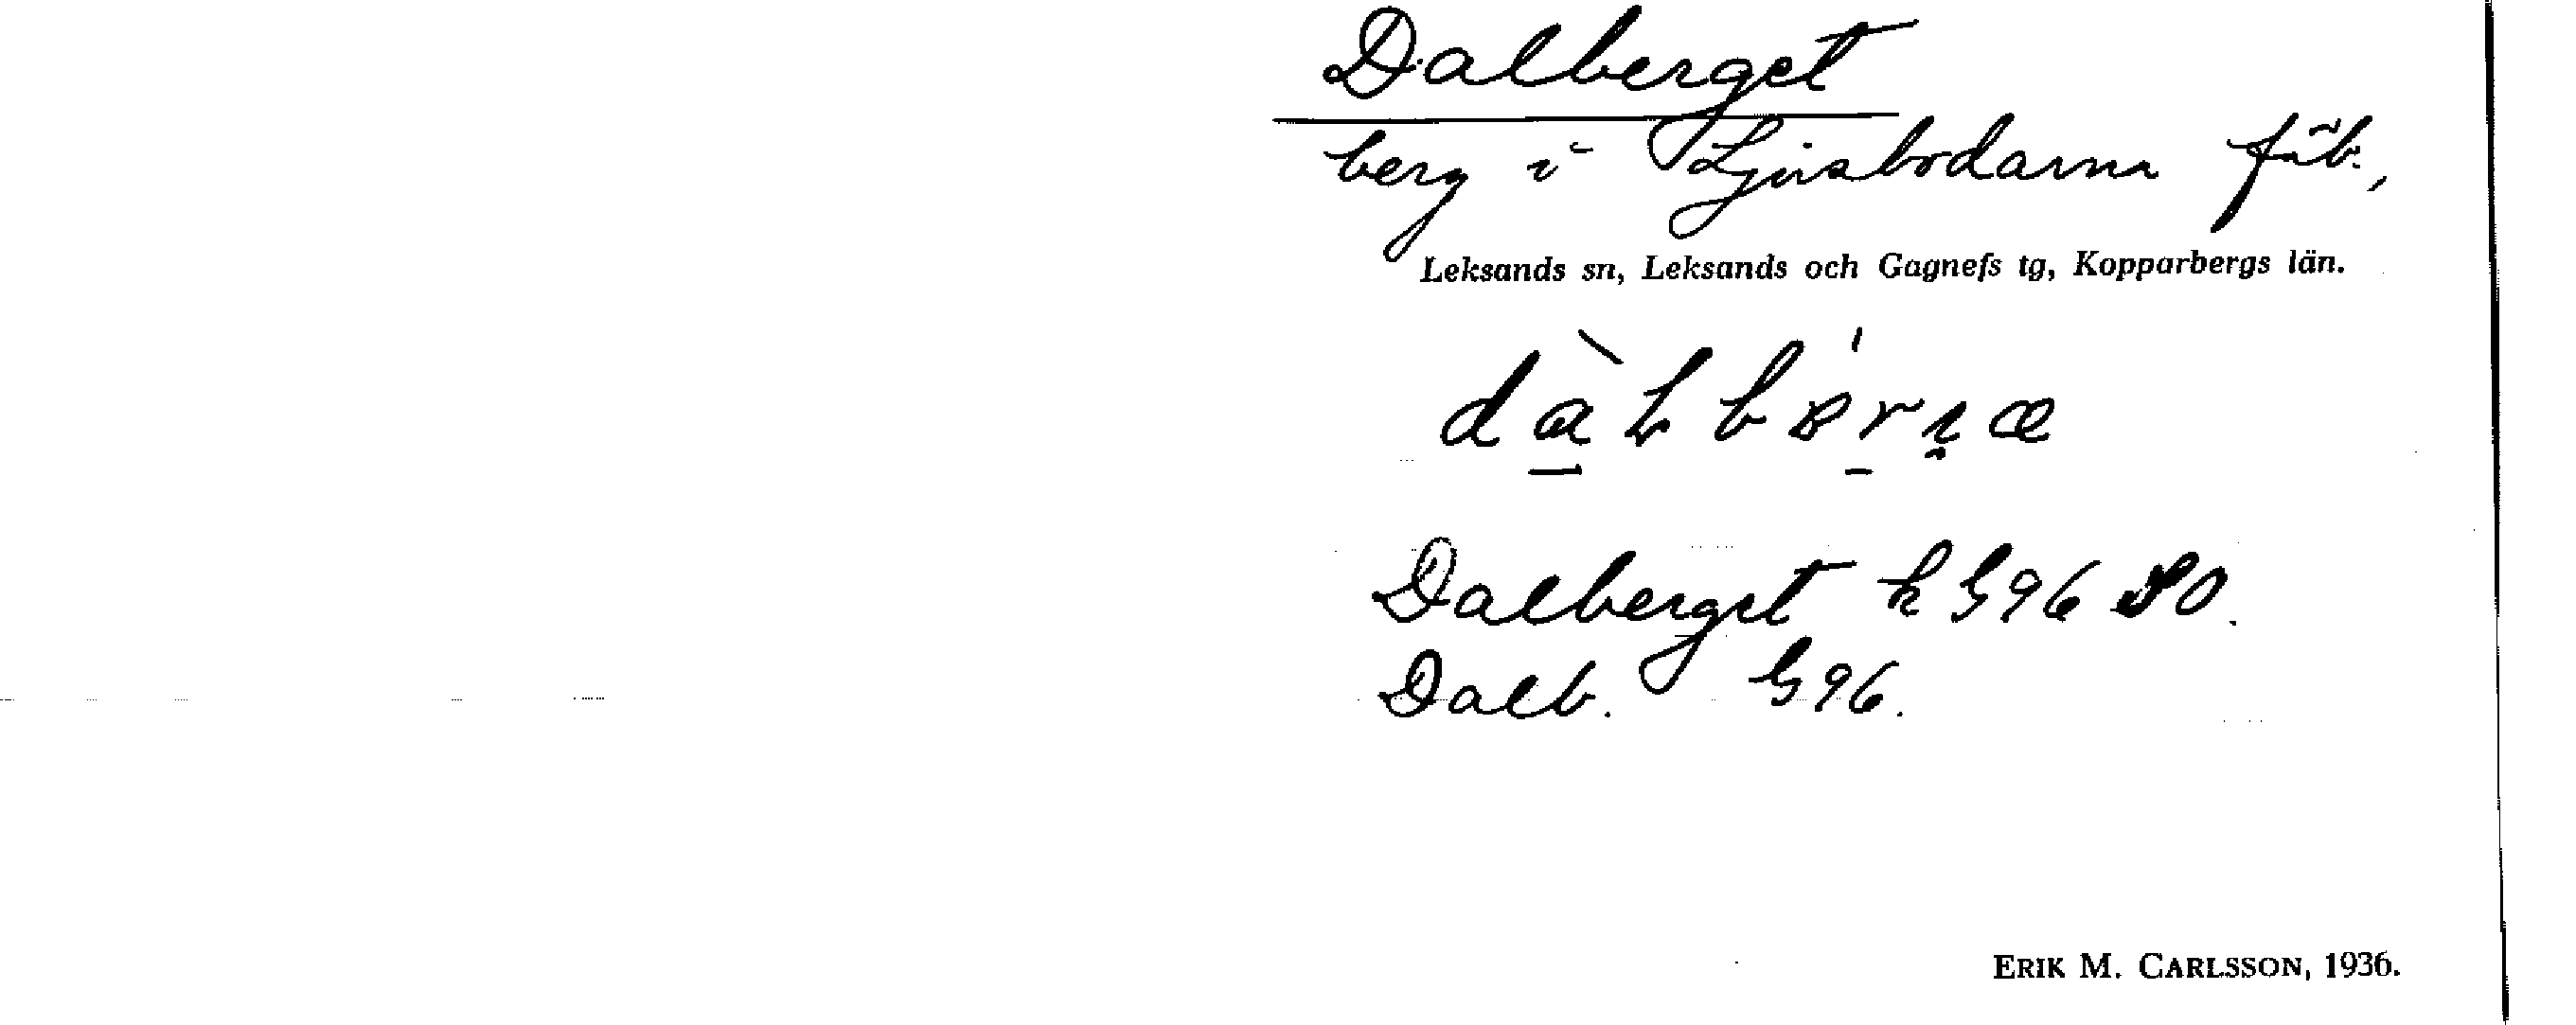 Dalberget
berg i Ljusbodarna fäb.,
Leksands sn, Leksands och Gagnefs tg, Kopparbergs län.
Dalberget k G96 SO.
Dalb. G96.
ERIK M. CARLSSON, 1936.